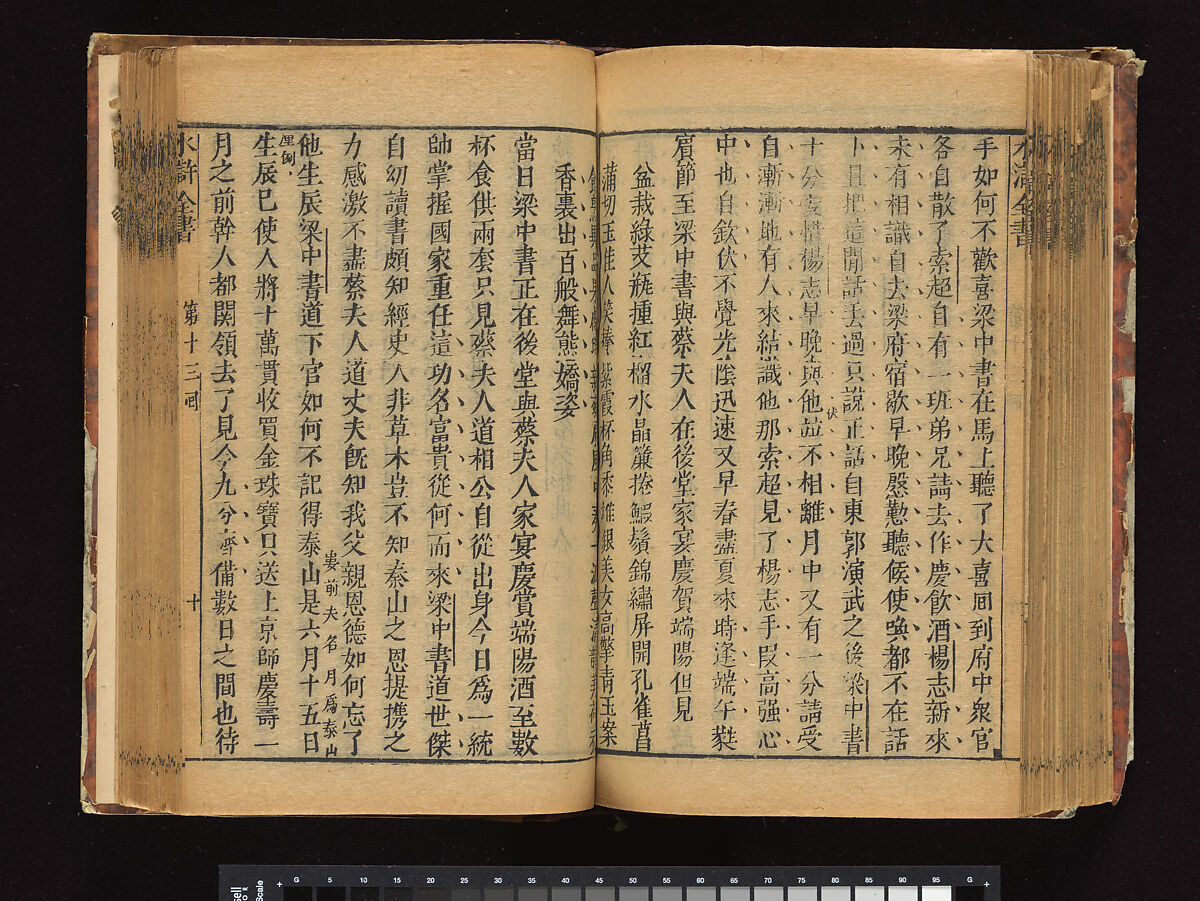 手如何不歡喜梁中書在馬上聽了大喜囘到府中衆官
各自散了索超自有一班弟兄請去作慶飲酒楊志新來
未有相識自去梁府宿歇早晚慇懃聽候使喚都不在話
下且把這閒話丟過只說正話自東郭演武之後梁中書
十分愛惜楊志早晚與他並不相離月中又有一分請受
自漸漸地有人來結識他那索超見了楊志手段高强心
中也自欽伏不覺光陰迅速又早春盡夏來時逢端午蕤
賓節至梁中書與蔡夫人在後堂家宴慶賀端陽但見
盆栽綠艾瓶揷紅榴水晶簾捲鰕鬚錦繡屏開孔雀菖
蒲切玉佳人笑捧紫霞杯角黍堆銀美女高擎靑玉案
香裏出百般舞態嬌姿
當日梁中書正在後堂與蔡夫人家宴慶賞端陽酒至數
杯食供兩套只見蔡夫人道相公自從出身今日爲一統
帥掌握國家重任這功名富貴從何而來梁中書道世傑
自幼讀書頗知經史人非草木豈不知泰山之恩提携之
力感激不盡蔡夫人道丈夫旣知我父親恩德如何忘了
他生辰梁中書道下官如何不記得泰山是六月十五日
生辰已使人將十萬貫收買金珠寶貝送上京師慶壽一
月之前幹人都關領去了見今九分齊備數日之間也待
水滸全書
第十三囘
十
水滸全書
G 5 10 15 20 25 30 35 40 45 50 55 60 65 70 75 80 85 90 95 G